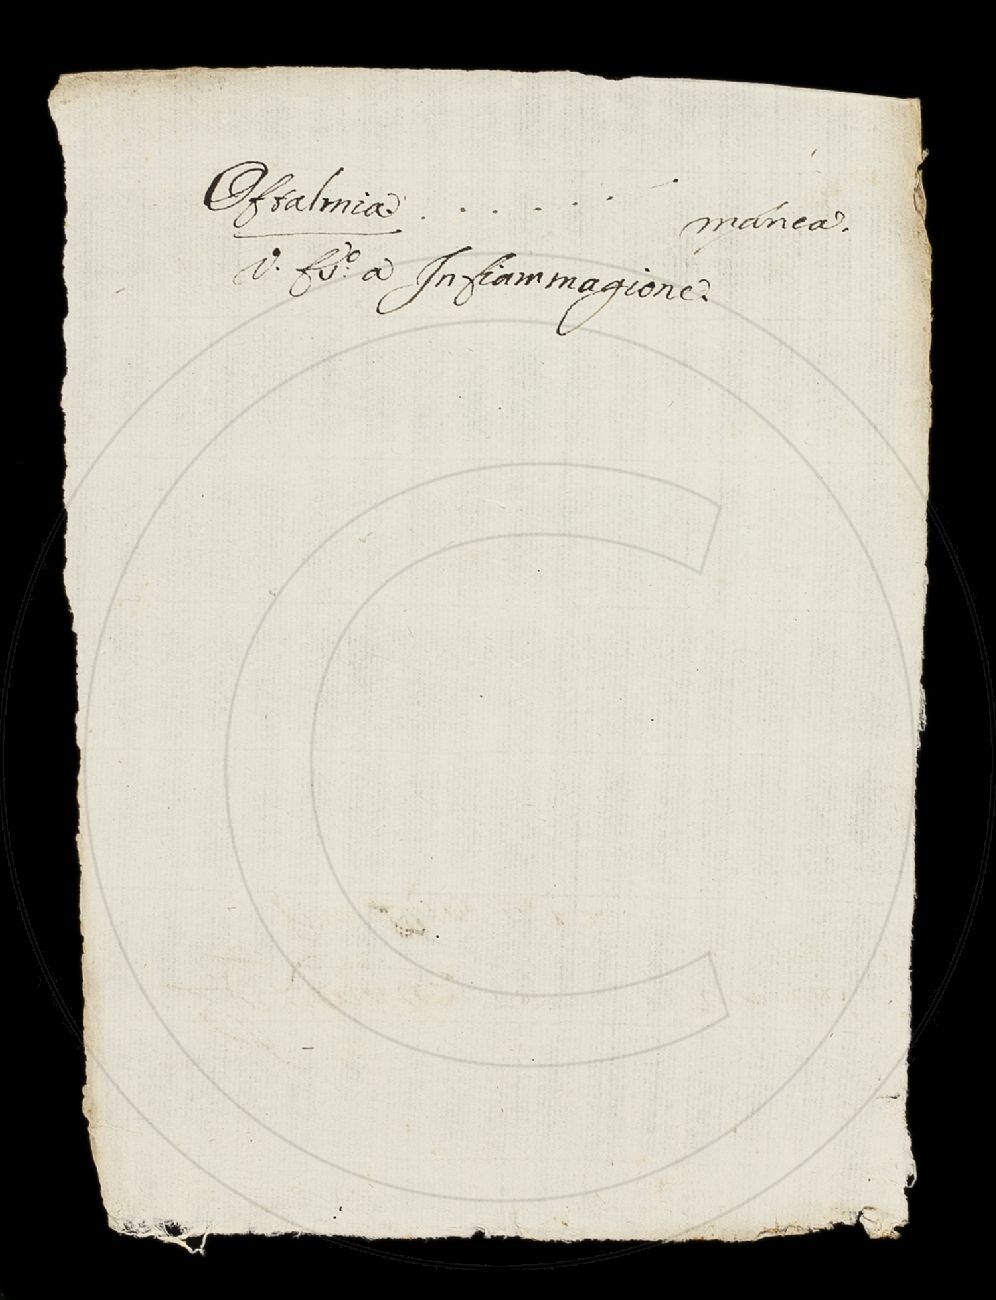 Oftalmia . . . . . . . manca.
V. a Infiammagione.